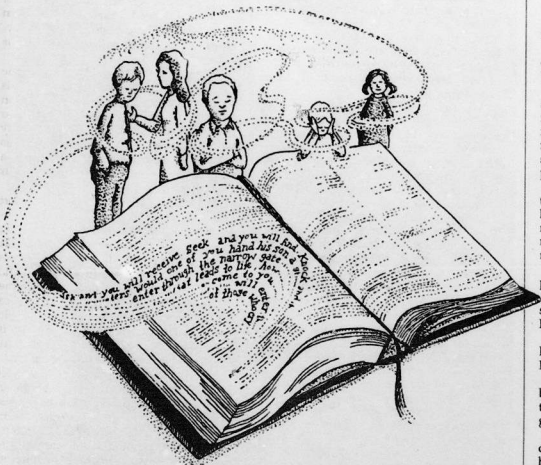 Ask and you will receive Seek and you will find Knock and
ters would one of you hand his son a
enter through the narrow gate
that leads to life How
come to you
will enter
of those